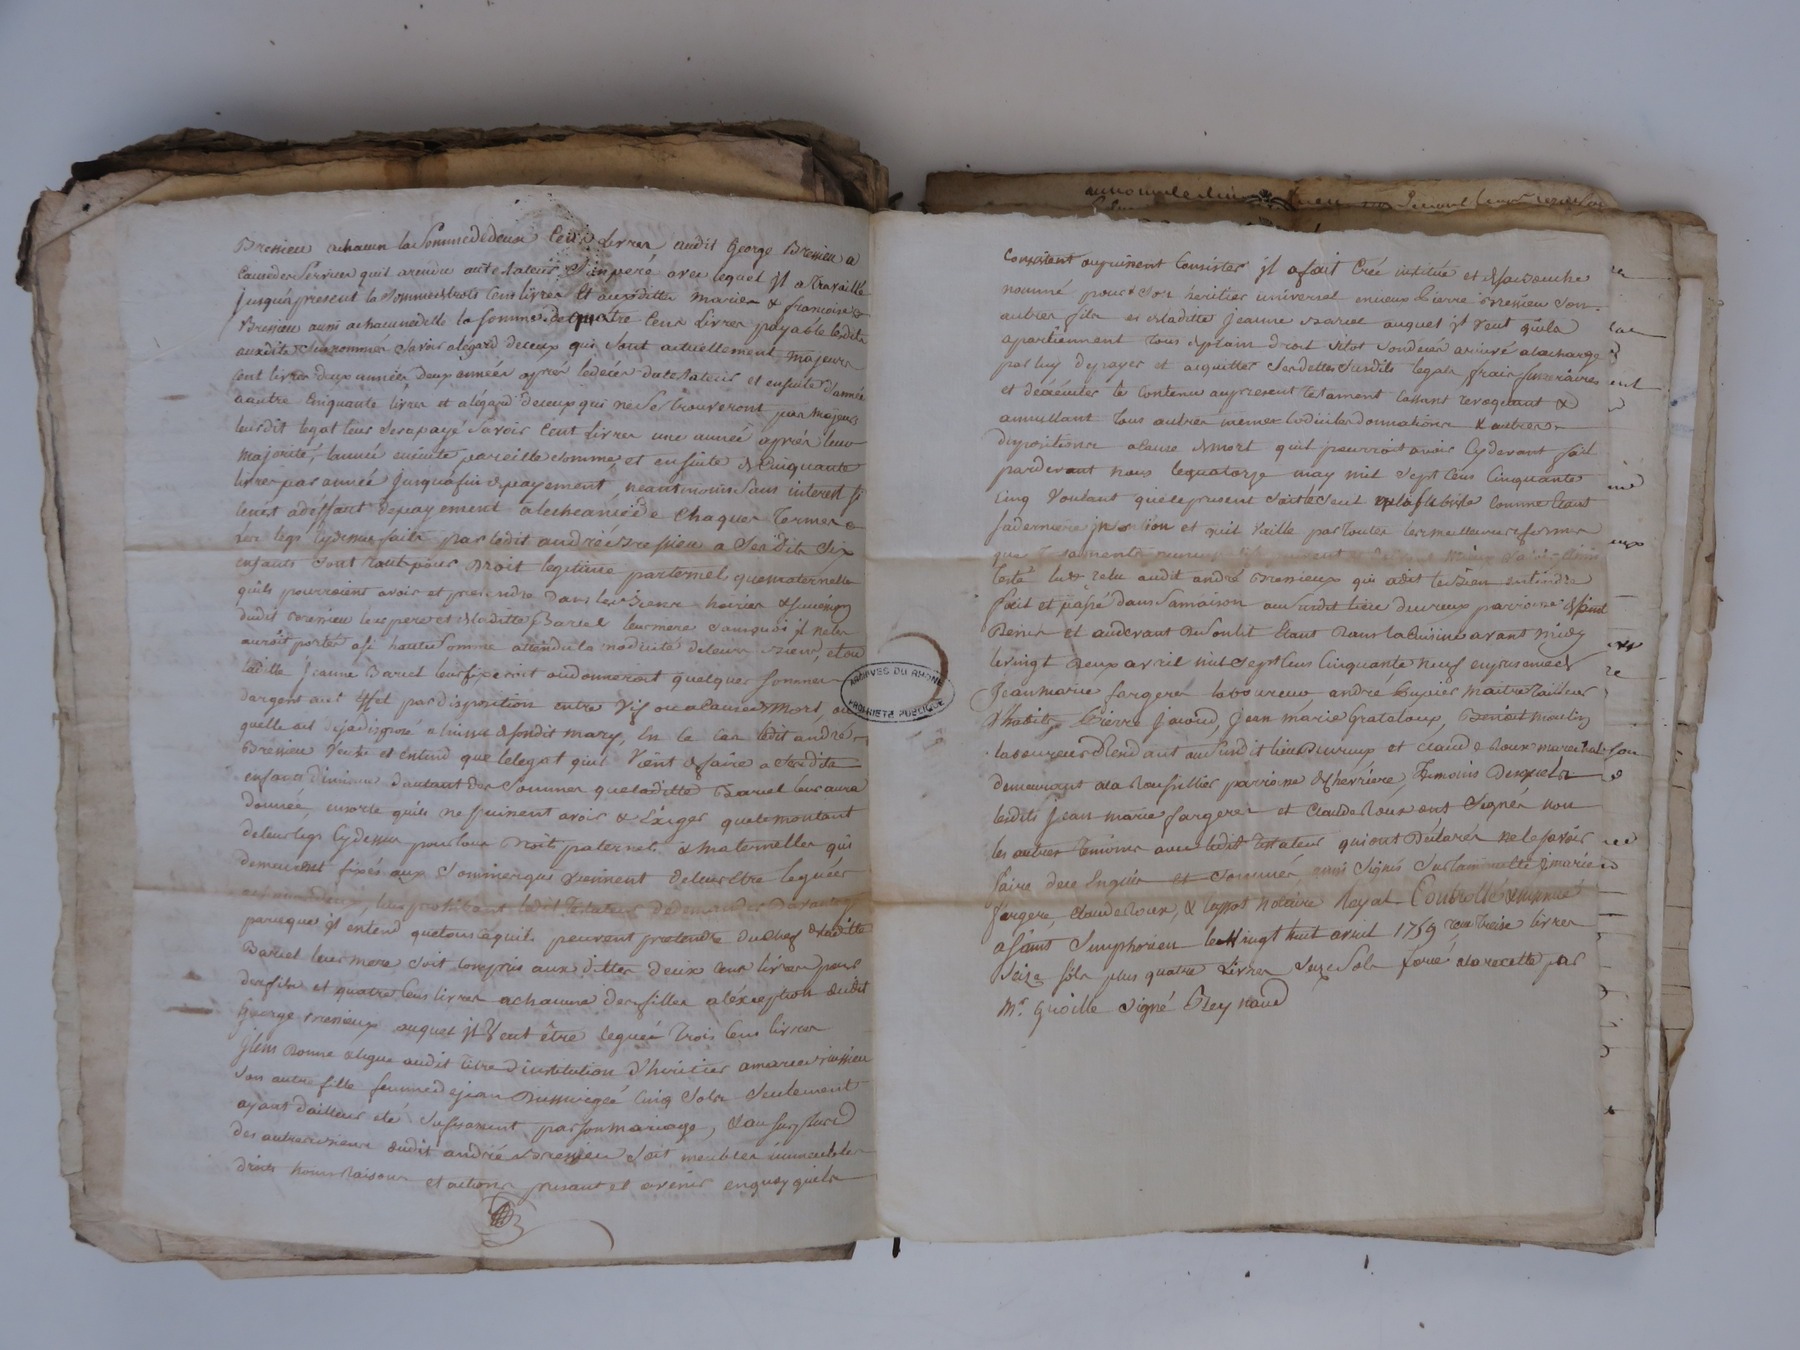 Bressieu achacun la Somme de deux Cens Livres audit George Bressieu a
Cause des Services quil a rendu au testateur Son pere avec lequel jl a travaillé
jusqu'a present la somme de trois Cens livres Et auxdittes Maries & francoise
Bressieu aussi achacune d'elle la somme de quatre Cens Livres payable ledit
auxdits Susnommés Savoir alégard de ceux qui sont actuellement majeurs
Cent livres deux années deux années apres le deces du testateur et ensuitte d'année
aautre Cinquante livres et alégard de ceux qui ne se trouveront pas majeurs
leurdit legat leur Sera payé Savoir Cent Livres une année aprés leur
majorité, lannée ensuitte pareille somme et ensuitte de Cinquante
livres par année jusquafin de payement, neantmoins Sans interest si
ce n'est a deffaut de payement alecheance de Chaques Termes
Les legs Cydessus faits par ledit andré Bressieu a Sesdits Six
enfants sont tant pour Droit legitime paternel que maternelle
quils pourroient avoir et pretendre dans les Biens hoiries &
dudit Bressieu leur pere et de laditte Bariel leur mere sans quoi jl ne les
auroit portés asi haute somme attendu la modicité de leurs Biens, et ou
laditte Jeanne Bariel leur fixeroit ou donneroit quelques sommes
dargent ou effet par disposition entre Vifs ou a Cause de Mort, ou
quelle eut deja disposé a linsu de sondit mary, En ce Cas ledit andré
Bressieu Veut et entend que le legat quil Vient de faire a Sesdits
enfants diminue dautant des Sommes que laditte Bariel leur aura
donnée, ensorte quils ne puissent avoir & Exiger que le montant
de leur legs Cydessus pour tous Droit paternel & maternelles qui
demeurent fixés aux Sommes qui viennent de leur Etre leguées
leur prohibant ledit Testateur de demander davantage
parceque jl entend que tout ce quils peuvent pretendre du chef de laditte
Bariel leur mere soit compris aux dittes deux Cens livres pour
ses fils et quatre Cens livres a chacune des filles aléxception dudit
George Bressieux auquel jl Veut être legué Trois Cens livres
jtem Donne & legue audit titre d'institution d'heritier a marie Bressieu
Son autre fille femme de jean Cinq Sols Seulement
ayant dailleurs eté Suffisament par son mariage, & au surplus
des autres Biens dudit andré Bressieu soit meubles immeubles
droits noms Raisons et actions presant et avenir en quoy quils
Consistent ou puissent Consister jl a fait Créé institué et de sa bouche
nommé pour Son heritier universel enieux Pierre Bressieu Son
autre fils et de laditte Jeanne Bariel auquel jl Veut quils
apartiennent tous de plain droit sitot Son deces arrivé ala charge
par luy de payer et acquitter Ses dettes Susdits legats frais funeraires
et dexécuter le Contenu au present testament Cassant revoquant &
annullant tous autres memes Codiciles donnations & autres
dispositions a Cause de mort quil pourroit avoir Cydevant fait
pardevant nous le quatorze may mil sept Cens Cinquante
Cinq Voulant que le present Soit le Seul valable comme Etant
Sa derniere intention et quil Vaille par toutes les meilleures formes
que Testaments
Eté lu & relu audit andré Bressieux qui a dit le bien entendre
fait et passé dans Samaison au Susdit lieu parroisse de Saint
Benin et audevant de Son lit Etant Dans la Cuisine avant midy
le vingt Deux avril mil Sept Cens Cinquante Neuf en presence de
Jean marie fargere laboureur andré Maitre tailleur
d'habits, Pierre Jacoud, Jean marie Grataloup, Benoit moulin
laboureurs Residant au Susdit lieu et claude Roux marechal
demeurant ala Roussillier parroisse de Cherriere, Temoins Desquels
lesdits Jean marie fargere et Claude Roux ont Signés non
les autres Temoins avec ledit Testateur qui ont Declarés ne le savoir
faire de ce Enquis et Sommés ainsi Signés Sur la minutte j marie
fargere, Claude Roux, & notaire Royal Controllé & insinué
a Saint Simphorien le Vingt huit avril 1759 Reçu treize livres
Seize Sols plus quatre Livres Seize Sols forcé ala recette par
Mr. Guoille Signé Reynaud
ARCHIVES DU RHONE
PROPRIÉTÉ PUBLIQUE